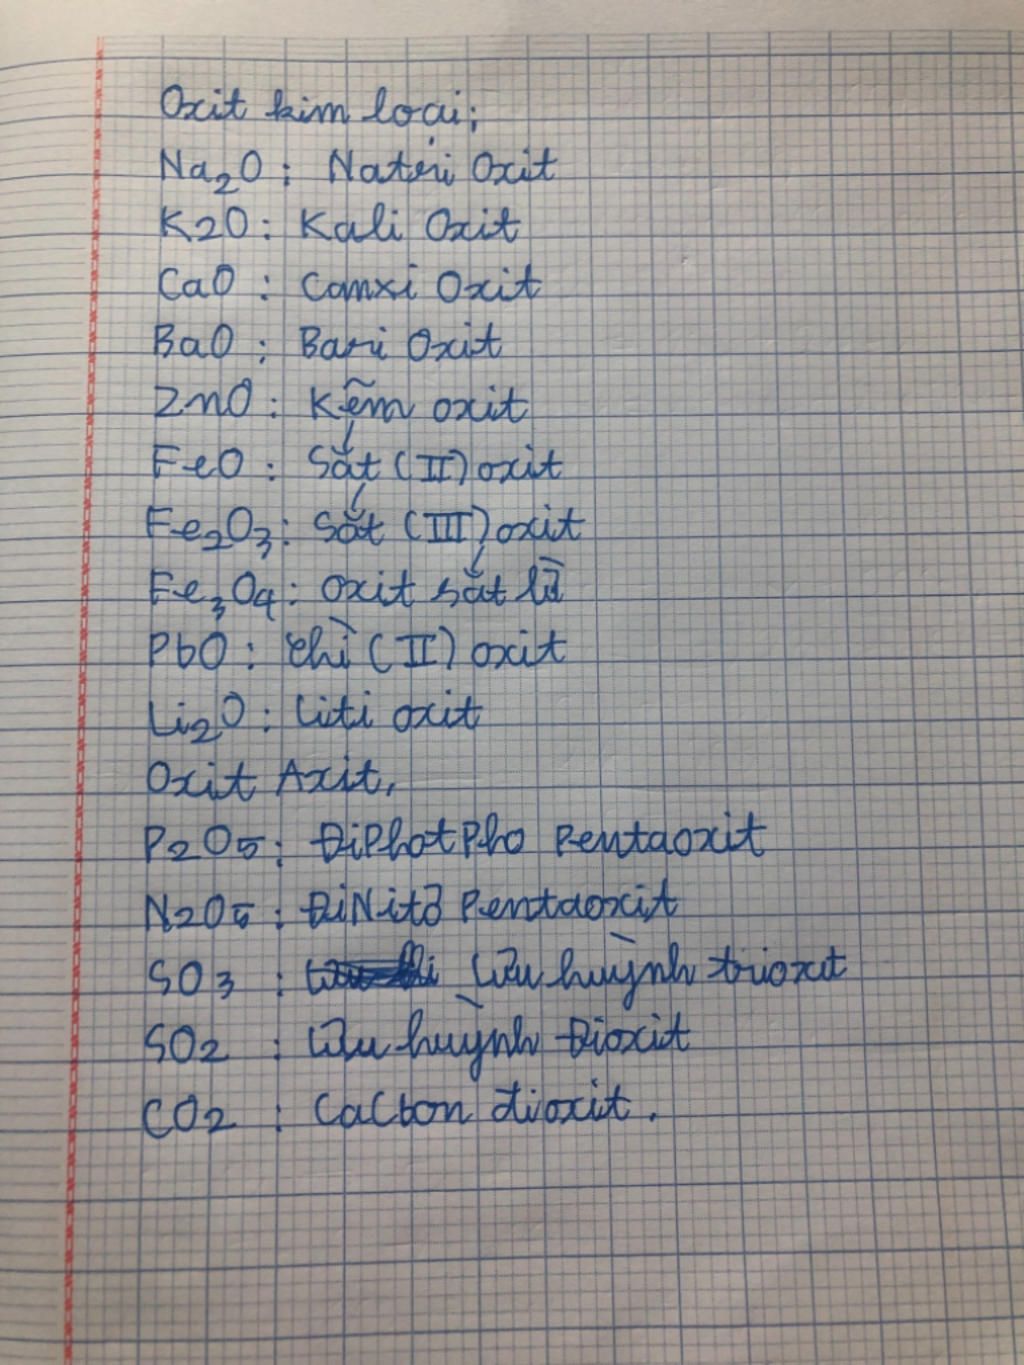 Oxit kim loại:
Na₂O : Natri Oxit
K2O : Kali Oxit
CaO : Canxi Oxit
BaO : Bari Oxit
ZnO : Kẽm oxit
FeO : Sắt (II) oxit
Fe₂O₃ : Sắt (III) oxit
Fe₃O₄ : Oxit sắt từ
PbO : Chì (II) oxit
Li₂O : Liti oxit
Oxit Axit,
P₂O₅ : ĐiPhotPho Pentaoxit
N₂O₅ : ĐiNitơ Pentaoxit
SO₃ : Lưu huỳnh trioxit
SO₂ : Lưu huỳnh Đioxit
CO₂ : CaCbon đioxit.